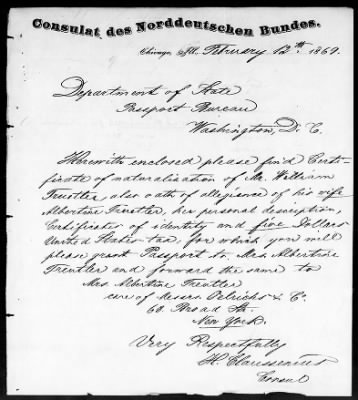 Consulat des Norddeutschen Bundes.
Chicago, Ill. February 12th 1869.
Department of State
Passport Bureau
Washington, D. C.
Herewith enclosed please find Certi-
ficate of naturalization of Mr. William
Treutler, also oath of allegiance of his wife
Albertine Treutler, her personal description,
Certificates of identity and five Dollars
United States tax, for which you will
please grant Passport to Mrs. Albertine
Treutler and forward the same to
Mrs. Albertine Treutler
care of Messrs Oelrichs & Co.
60. Broad Str.
New York.
Very Respectfully
H. Claussenius
Consul